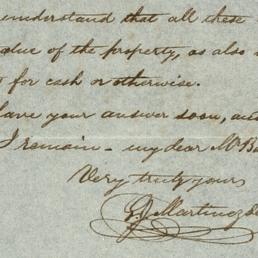 understand that all these
value of the property, as also
for cash or otherwise.
have your answer soon, and
I remain - my dear Mr
Very truly yours
Martinez